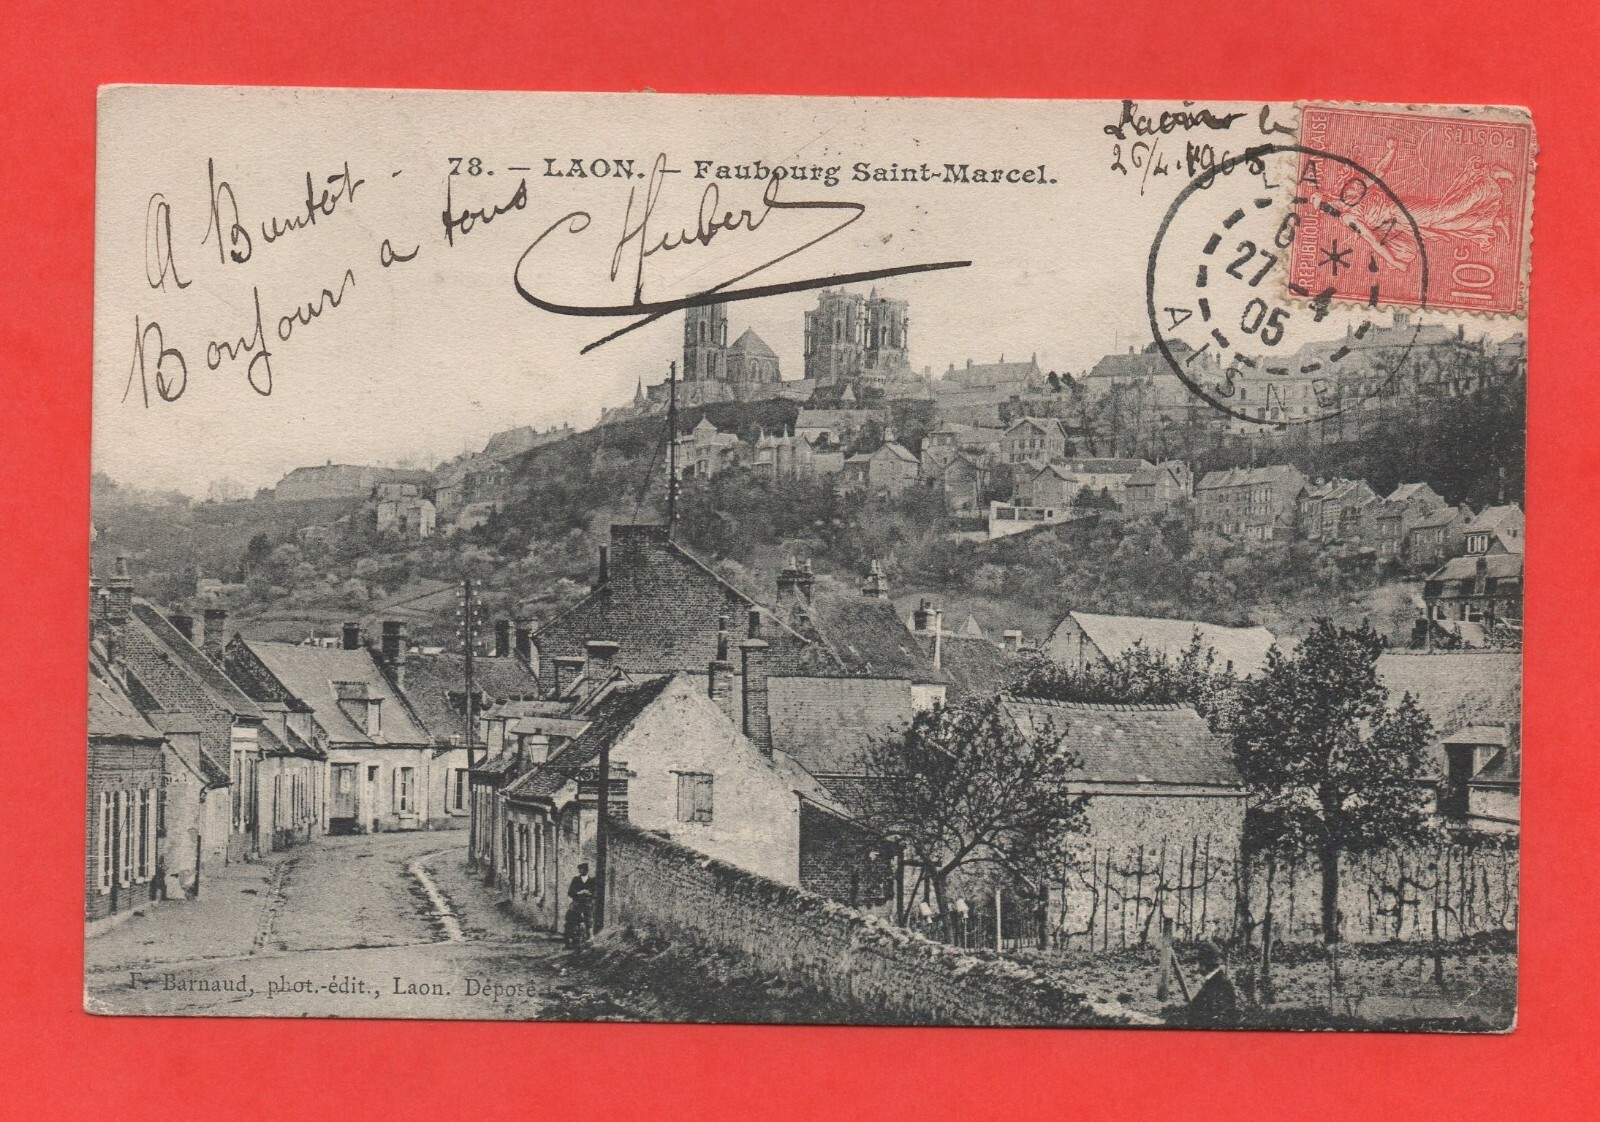 78. — LAON. — Faubourg Saint-Marcel.
Laon le
26/4.1905
A Bientôt -
Bonjours a tous
Hubert
RÉPUBLIQUE FRANÇAISE
POSTES
10c
LAON
6 *
27 - 4
05
AISNE
F. Barnaud, phot.-édit., Laon. Déposé